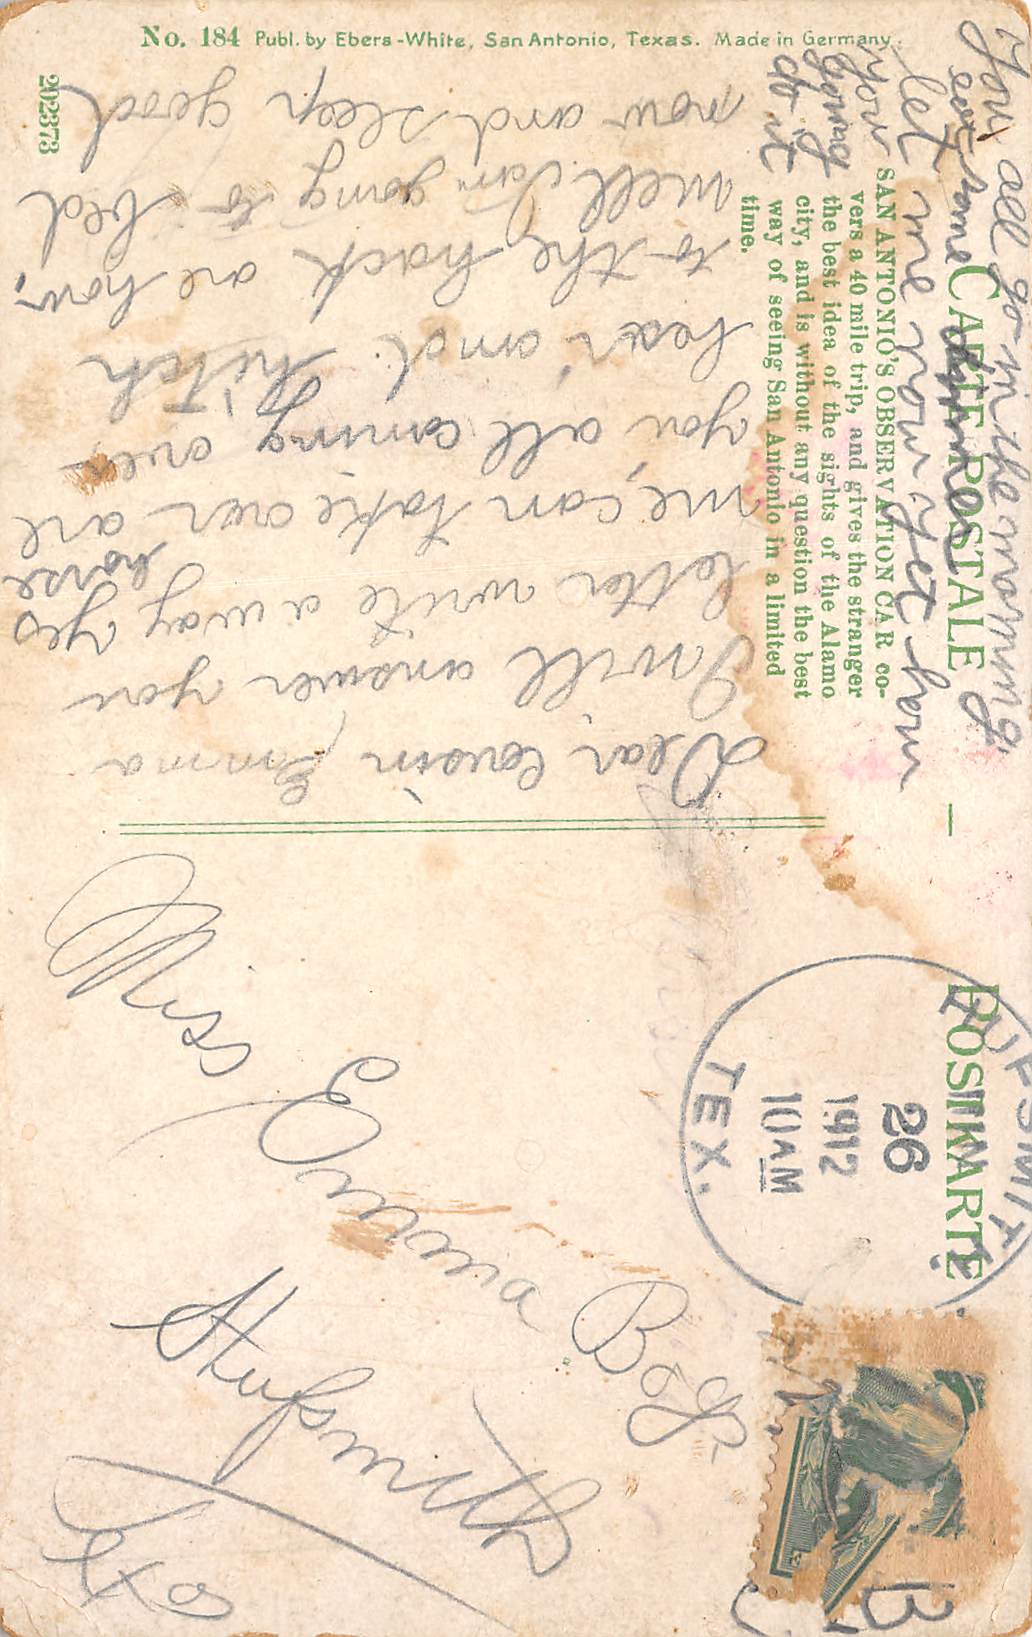 No. 184 Publ. by Ebers-White, San Antonio, Texas. Made in Germany.
202373
CARTE POSTALE — POSTKARTE
SAN ANTONIO'S OBSERVATION CAR co-
vers a 40 mile trip, and gives the stranger
the best idea of the sights of the Alamo
city, and is without any question the best
way of seeing San Antonio in a limited
time.
Dear Cousin Emma
I will answer you
letter write a way yes
me, can take over are horse
you all coming over
and hitch
to the hack are how,
well I am going to bed
now and sleep good
You all go in the morning,
eat some
let me now yet how
your going
do it
HUFSMITH
26
1912
10 AM
TEX.
Miss
Emma
Hufsmith
Tex